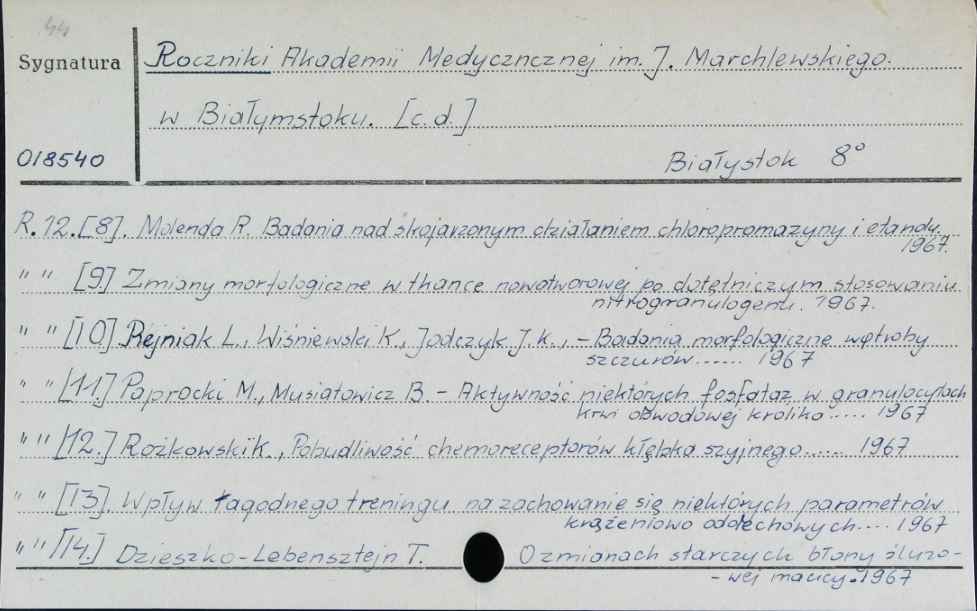 44
Sygnatura
Roczniki Akademii Medyczncznej im. J. Marchlewskiego.
w Białymstoku. [c.d.]
018540
Białystok 8°
R. 12. [8]. Molenda R. Badania nad skojarzonym działaniem chloropromazyny i etanolu.
1967.
" " [9] Zmiany morfologiczne w tkance nowotworowej po dotętniczym stosowaniu
nitrogranulogenu. 1967.
" " [10] Rejniak L., Wiśniewski K., Jodczyk J.K., - Badania morfologiczne wątroby
szczurów....... 1967
" " [11.] Paprocki M., Musiatowicz B. - Aktywność niektórych fosfataz w granulocytach
krwi obwodowej królika..... 1967
" " [12.] Rożkowski K., Pobudliwość chemoreceptorów kłębka szyjnego...... 1967
" " [13]. Wpływ łagodnego treningu na zachowanie się niektórych parametrów
krążeniowo oddechowych.... 1967
" " [14.] Dzieszko-Lebensztejn T. O zmianach starczych błony śluzo-
-wej macicy. 1967